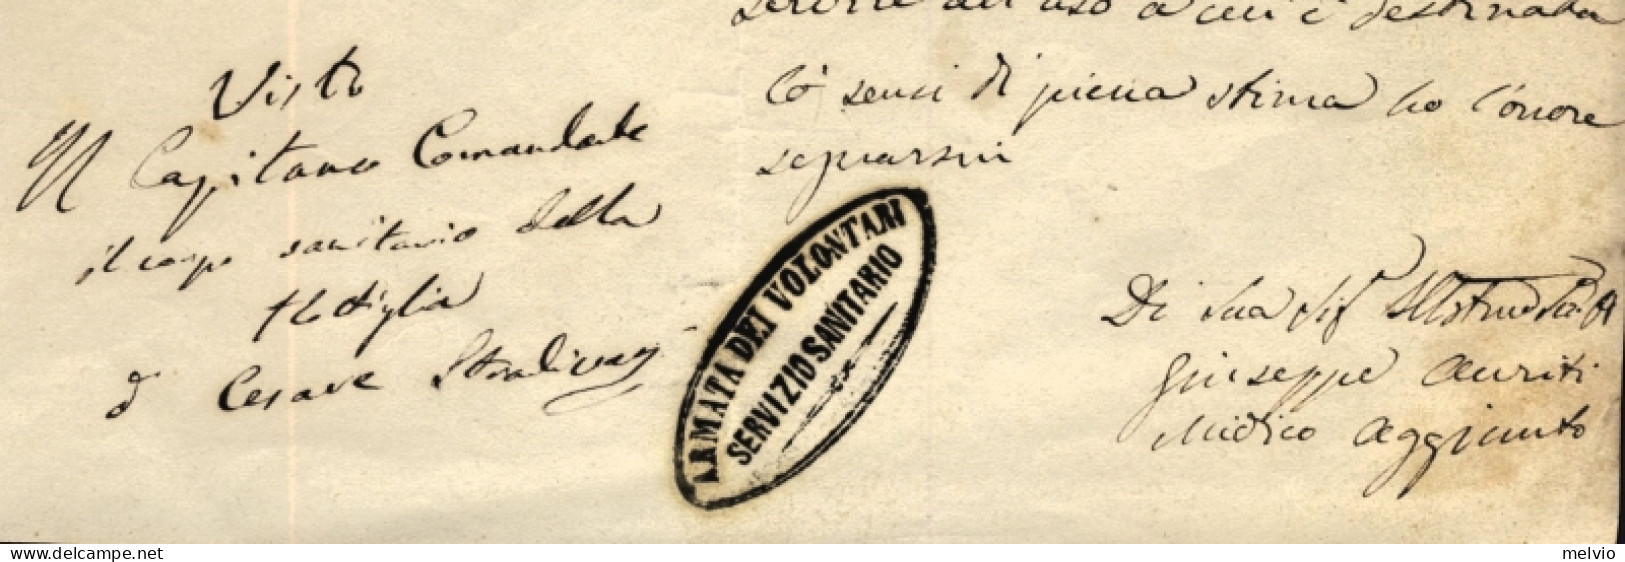 servire all'uso a cui è destinata
Co' sensi di piena stima ho l'onore
segnarmi
Visto
Il Capitano Comandante
il corpo sanitario della
flotiglia
Cesare
ARMATA DEI VOLONTARI
SERVIZIO SANITARIO
Di Sua Sig
Giuseppe Auriti
Medico Aggiunto
www.delcampe.com
melvio